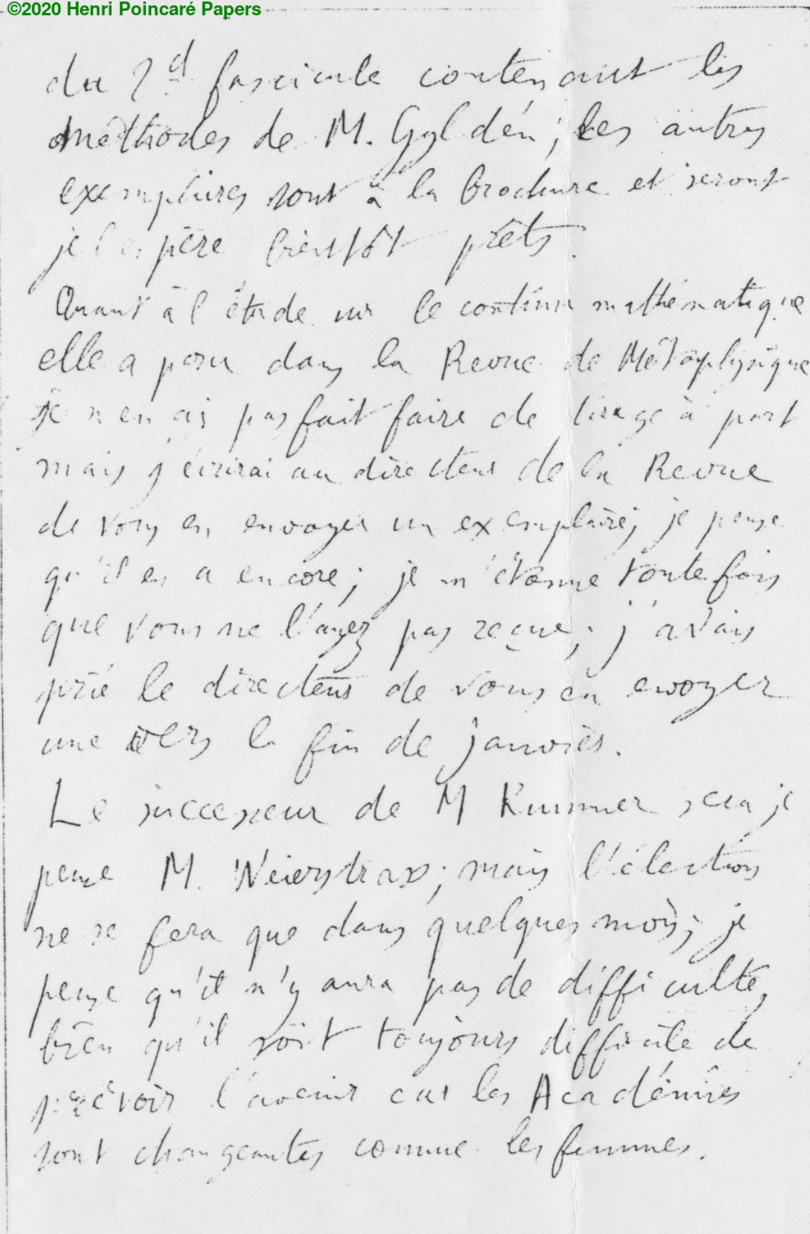 ©2020 Henri Poincaré Papers
du 2d fascicule contenant les
méthodes de M. Gyldén; les autres
exemplaires sont à la brochure et seront
je l'espère bientôt prêts.
Quant à l'étude sur le continu mathématique
elle a paru dans la Revue de Métaphysique
Je n'en ai pas fait faire de tirage à part
mais j'écrirai au directeur de la Revue
de vous en envoyer un exemplaire; je pense
qu'il en a encore; je m'étonne toutefois
que vous ne l'ayez pas reçue; j'avais
prié le directeur de vous en envoyer
une vers la fin de janvier.
Le successeur de M Kummer sera je
pense M. Weierstrass; mais l'élection
ne se fera que dans quelques mois; je
pense qu'il n'y aura pas de difficulté,
bien qu'il soit toujours difficile de
prévoir l'avenir car les Académies
sont changeantes comme les femmes.